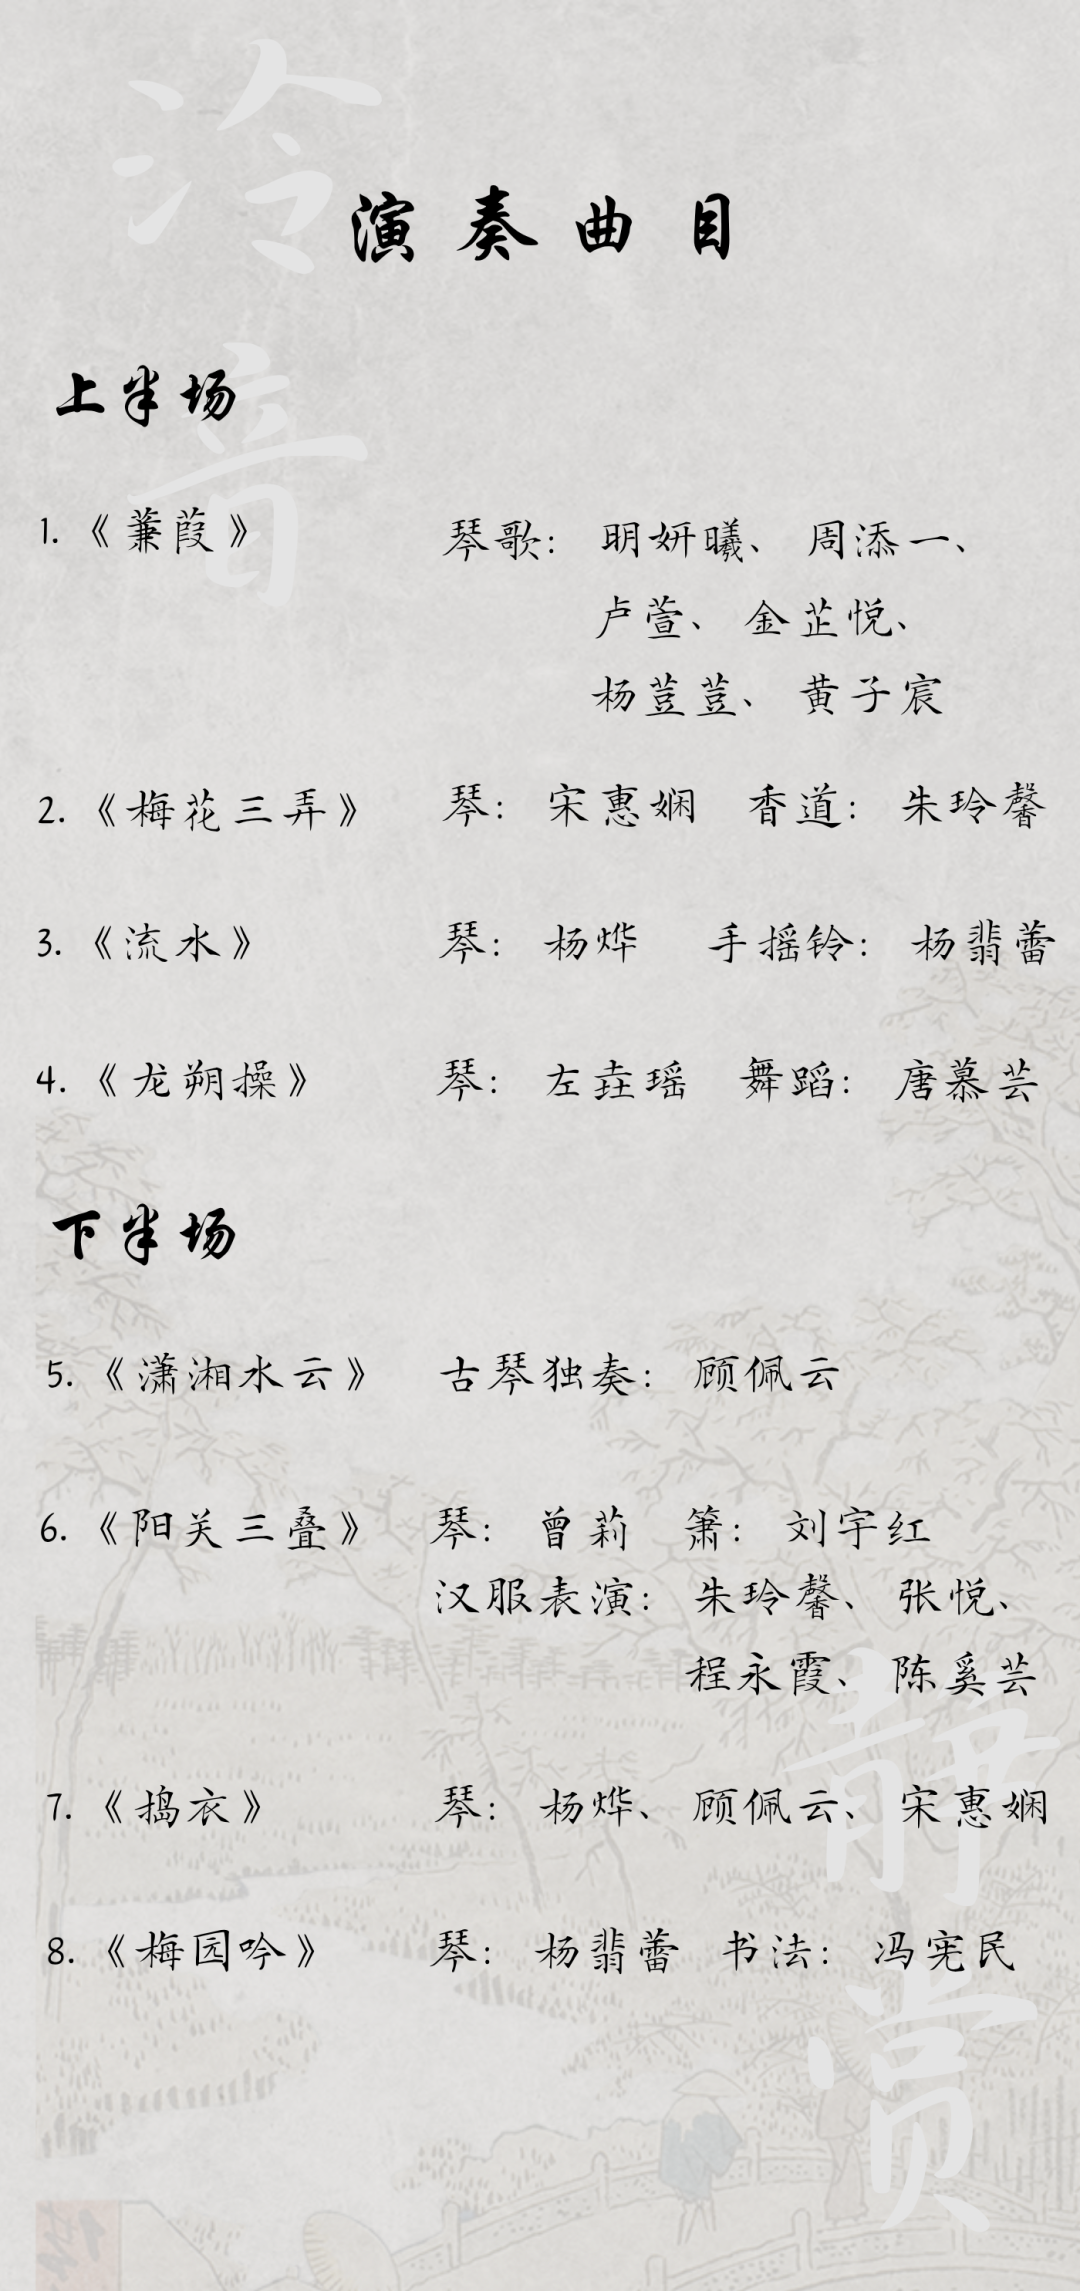 泠音
演奏曲目
上半场
1.《蒹葭》 琴歌: 明妍曦、周添一、
卢萱、金芷悦、
杨荳荳、黄子宸
2.《梅花三弄》 琴: 宋惠娴 香道: 朱玲馨
3.《流水》 琴: 杨烨 手摇铃: 杨翡蕾
4.《龙朔操》 琴: 左垚瑶 舞蹈: 唐慕芸
下半场
5.《潇湘水云》 古琴独奏: 顾佩云
6.《阳关三叠》 琴: 曾莉 箫: 刘宇红
汉服表演: 朱玲馨、张悦、
程永霞、陈奚芸
7.《捣衣》 琴: 杨烨、顾佩云、宋惠娴
8.《梅园吟》 琴: 杨翡蕾 书法: 冯宪民
静赏